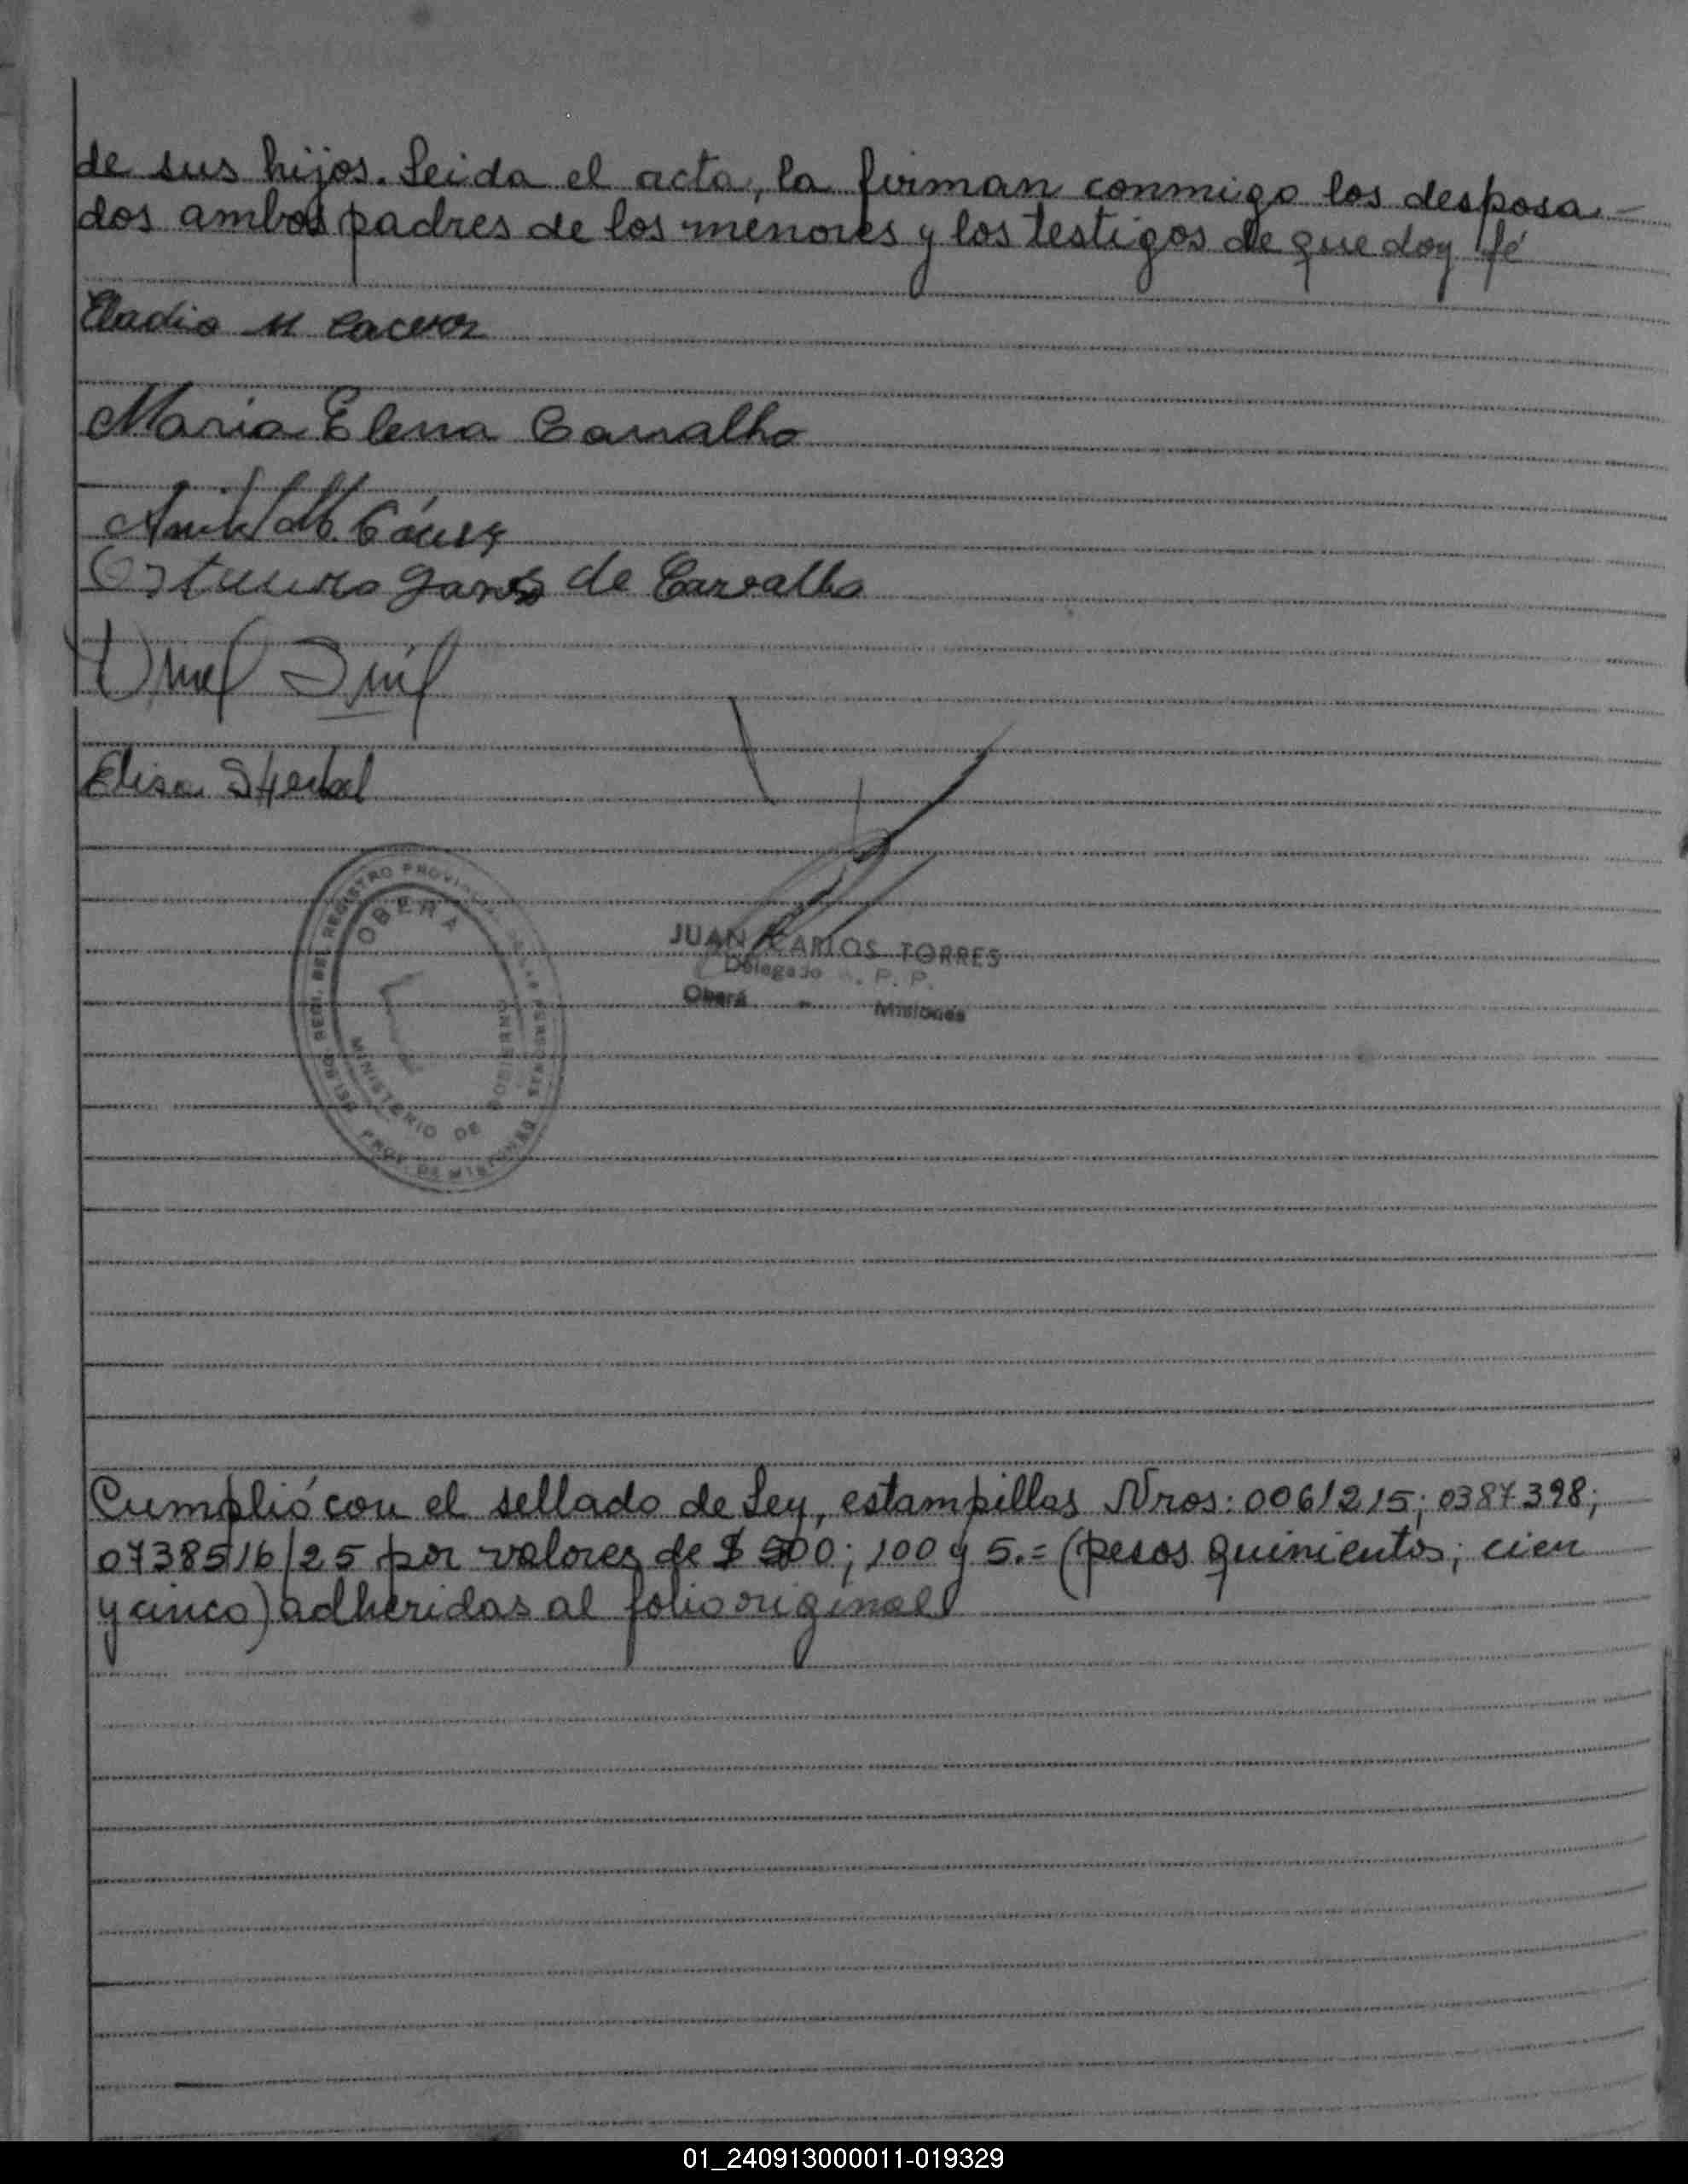 de sus hijos. Leida el acta, la firman conmigo los desposa-
dos ambos padres de los menores y los testigos de que doy fé
Eladio M
Maria Elena Carvalho
de Carvalho
Elisa
REGISTRO PROVINCIAL DE LAS PERSONAS
OBERA
MINISTERIO DE GOBIERNO
PROV. DE MISIONES
JUAN CARLOS TORRES
Delegado R. P. P.
Oberá - Misiones
Cumplió con el sellado de Ley, estampillas Nros: 0061215; 0387398;
0738516/25 por valores de $ 500; 100 y 5.= (pesos quinientos; cien
y cinco) adheridas al folio original
01_240913000011-019329